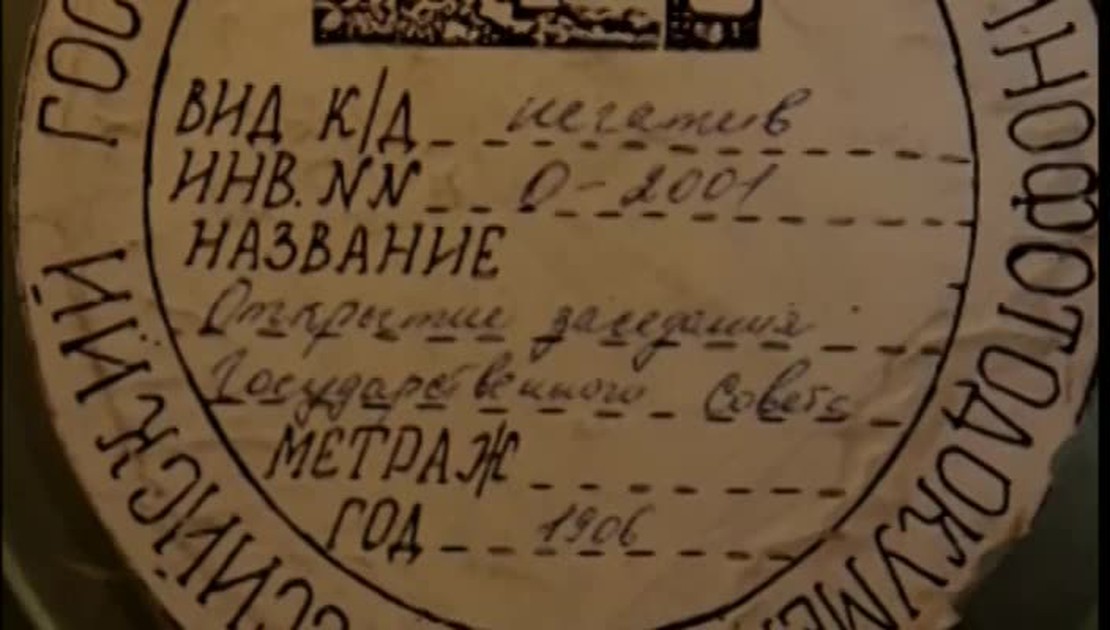 ВИД К/Д негатив
ИНВ. NN О-2001
НАЗВАНИЕ
Открытие заседания
Государственного Совета
МЕТРАЖ
ГОД 1906
ССИЙСКИЙ ГОС
НОФОТОДОКУМЕ